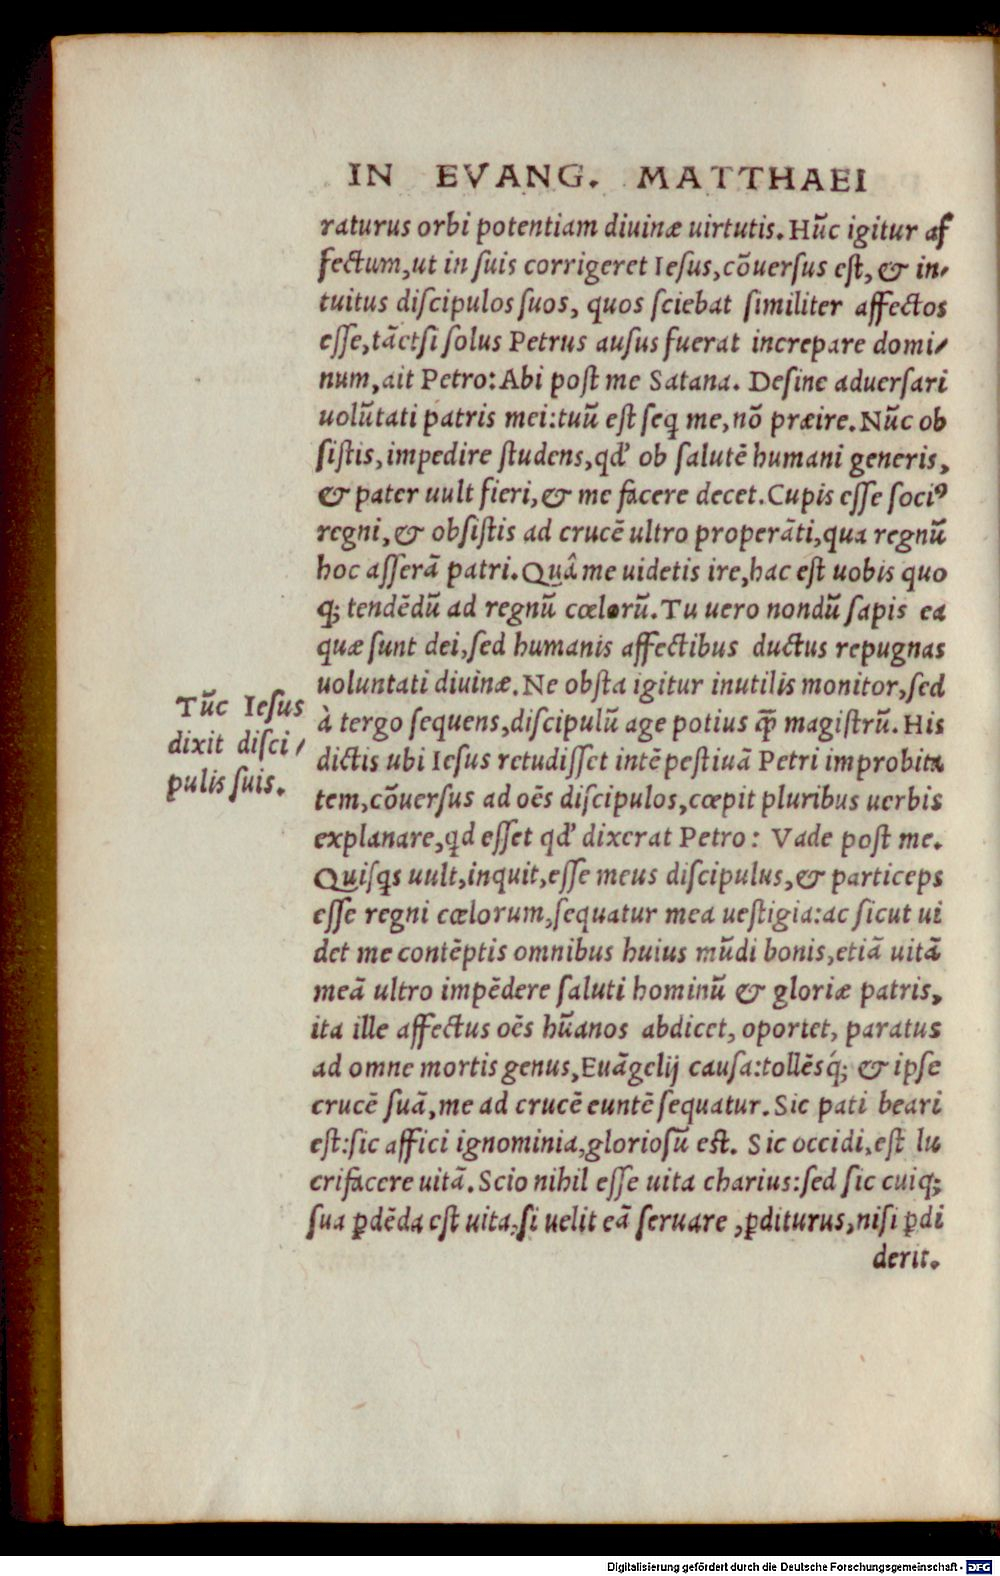 IN EVANG. MATTHAEI
raturus orbi potentiam diuinæ uirtutis. Hũc igitur af
fectum, ut in ſuis corrigeret Ieſus, cõuerſus eſt, & in-
tuitus diſcipulos ſuos, quos ſciebat ſimiliter affectos
eſſe, tãetſi ſolus Petrus auſus fuerat increpare domi-
num, ait Petro: Abi poſt me Satana. Deſine aduerſari
uolũtati patris mei: tuũ eſt ſeq̃ me, nõ præire. Nũc ob
ſiſtis, impedire ſtudens, qď ob ſalutẽ humani generis,
& pater uult fieri, & me facere decet. Cupis eſſe ſociꝰ
regni, & obſiſtis ad crucẽ ultro properãti, qua regnũ
hoc aſſerã patri. Quâ me uidetis ire, hac eſt uobis quo
q; tendẽdũ ad regnũ cœlorũ. Tu uero nondũ ſapis ea
quæ ſunt dei, ſed humanis affectibus ductus repugnas
uoluntati diuinæ. Ne obſta igitur inutilis monitor, ſed
à tergo ſequens, diſcipulũ age potius q̃̃ magiſtrũ. His
dictis ubi Ieſus retudiſſet intẽpeſtiuã Petri improbita
tem, cõuerſus ad oẽs diſcipulos, cœpit pluribus uerbis
explanare, qd eſſet qď dixerat Petro: Vade poſt me.
Quiſqs uult, inquit, eſſe meus diſcipulus, & particeps
eſſe regni cœlorum, ſequatur mea ueſtigia: ac ſicut ui
det me contẽptis omnibus huius mũdi bonis, etiã uitã
meã ultro impẽdere ſaluti hominũ & gloriæ patris,
ita ille affectus oẽs hũanos abdicet, oportet, paratus
ad omne mortis genus, Euãgelij cauſa: tollẽsq́; & ipſe
crucẽ ſuã, me ad crucẽ euntẽ ſequatur. Sic pati beari
eſt: ſic affici ignominia, glorioſũ eſt. Sic occidi, eſt lu
crifacere uitã. Scio nihil eſſe uita charius: ſed ſic cuiq;
ſua ꝑdẽda eſt uita, ſi uelit eã ſeruare, ꝑditurus, niſi ꝑdi
derit.
Tũc Ieſus
dixit diſci-
pulis ſuis.
Digitalisierung gefördert durch die Deutsche Forschungsgemeinschaft - DFG